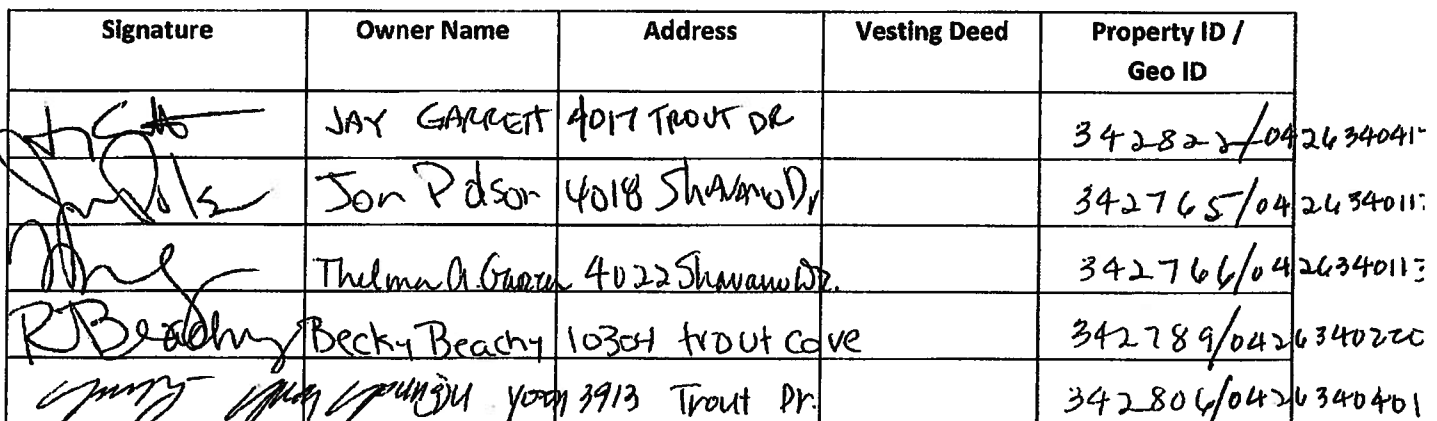 Signature Owner Name Address Vesting Deed Property ID /
Geo ID
JAY GARRETT 4017 TROUT DR 342822/042634041
Jon Polson 4018 Shavano Dr 342765/042634011
Thelma A. 4022 Shavano Dr. 342766/042634011
RJBeachy Becky Beachy 10304 trout cove 342789/042634022
Youngju Yoon 3913 Trout Dr. 342806/0426340401